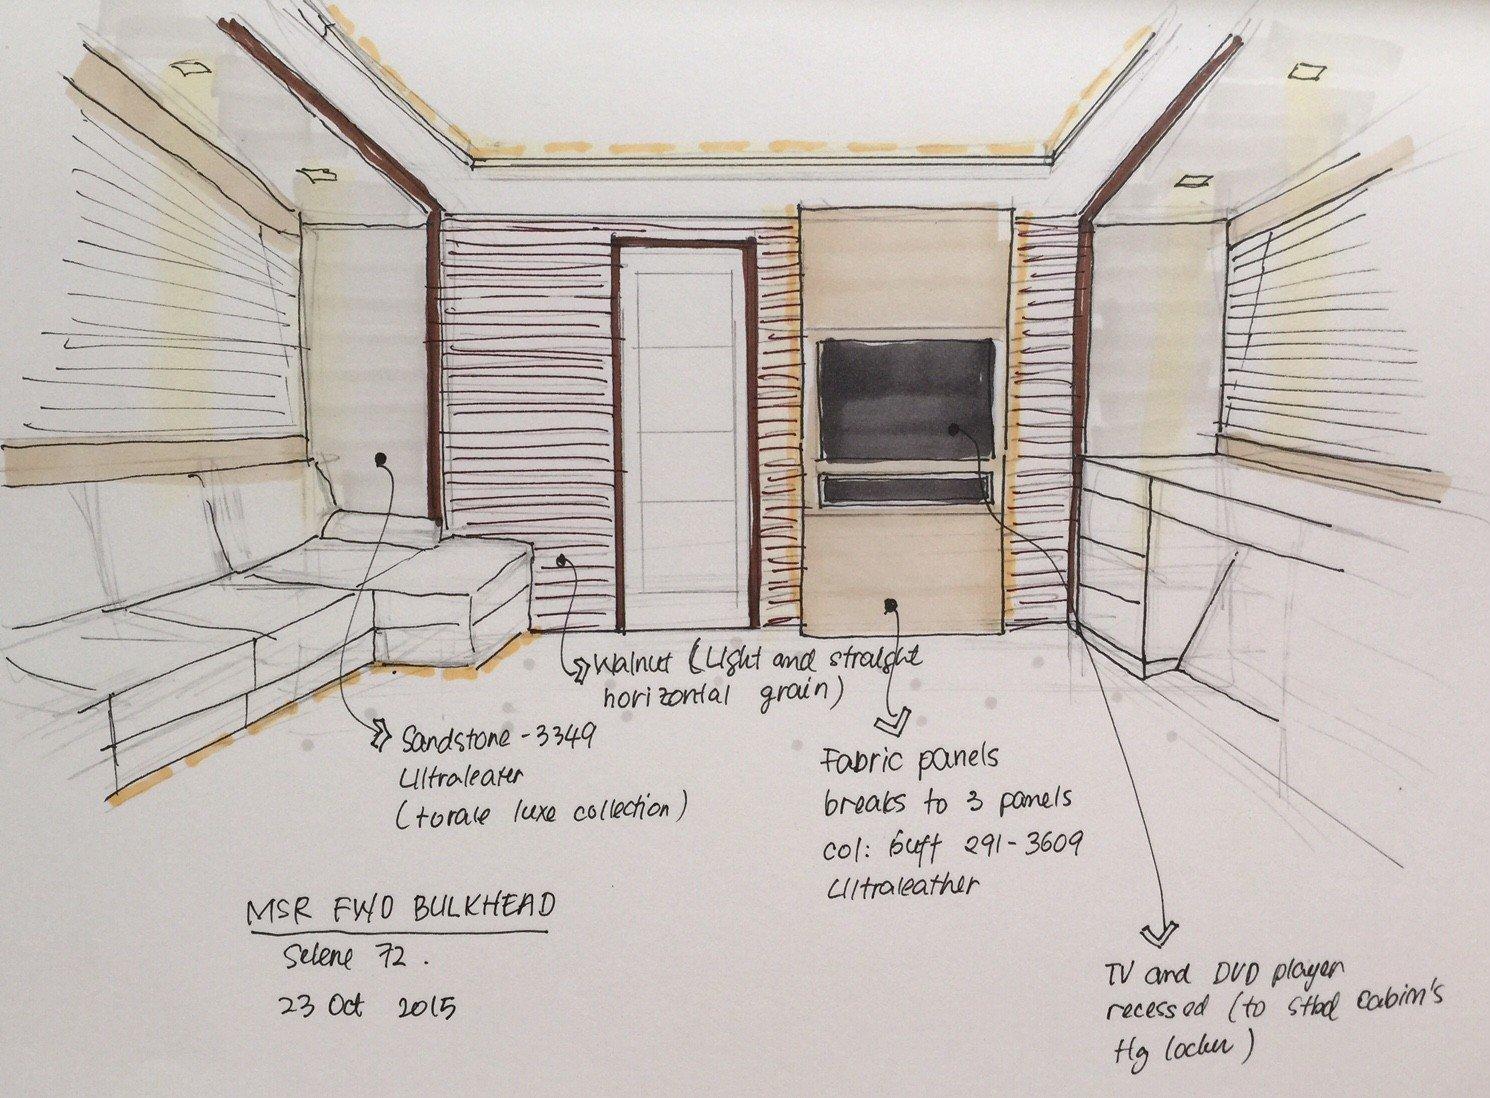 Walnut (Light and straight
horizontal grain)
Sandstone - 3349
Ultraleater
(torale luxe collection)
Fabric panels
breaks to 3 panels
col: Buff 291-3609
Ultraleather
MSR FWD BULKHEAD
Selene 72.
23 Oct 2015
TV and DVD player
recessed (to stbd cabin's
Hg locker)